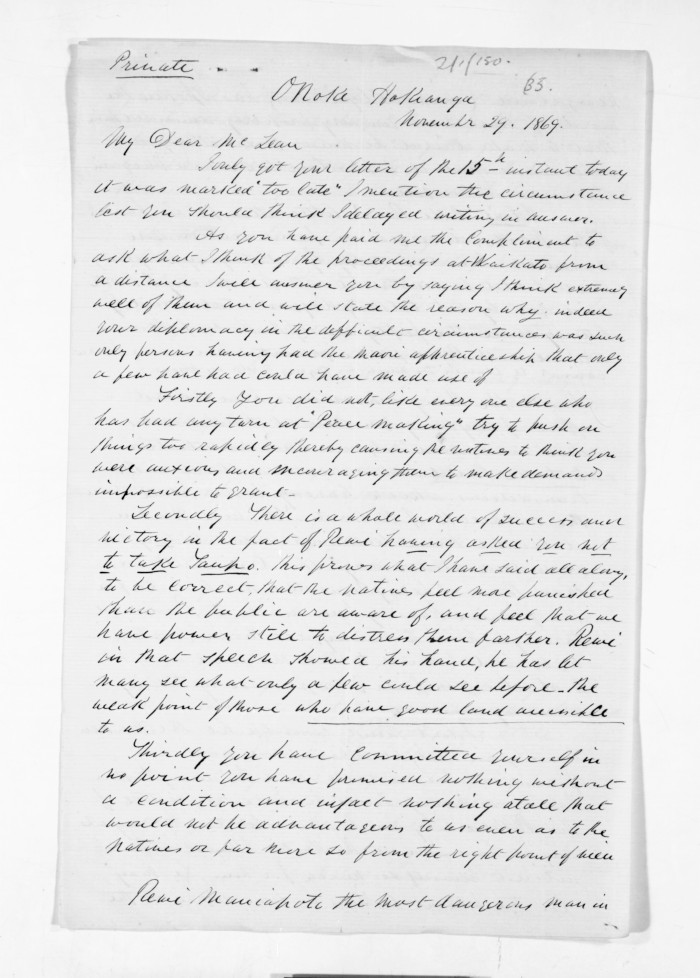 Private
2/1/150.
85.
Onoke Hokianga
November 29. 1869.
My Dear McLean
I only got your letter of the 15th instant today
it was marked "too late" I mention the circumstance
lest you should think I delayed writing in answer.
As you have paid me the compliment to
ask what I think of the proceedings at Waikato from
a distance I will answer you by saying I think extremely
well of them and will state the reason why. indeed
your diplomacy in the difficult circumstances was such
only persons having had the maori apprenticeship that only
a few have had could have made use of
Firstly You did not, like every one else who
has had any turn at "Peace making" try to push on
things too rapidly thereby causing the natives to think you
were anxious and encouraging them to make demands
impossible to grant -
Secondly There is a whole world of success and
victory in the fact of Rewi having asked you not
to take Taupo. this proves what I have said all along,
to be correct, that the natives feel more punished
than the public are aware of, and feel that we
have power still to distress them farther. Rewi
in that speech showed his hand, he has let
many see what only a few could see before - the
weak point of those who have good land accessible
to us.
Thirdly you have committed yourself in
no point you have promised nothing without
a condition and infact nothing atall that
would not be advantageous to us even as to the
natives or far more so from the right point of view
Rewi Maniapoto the most dangerous man in